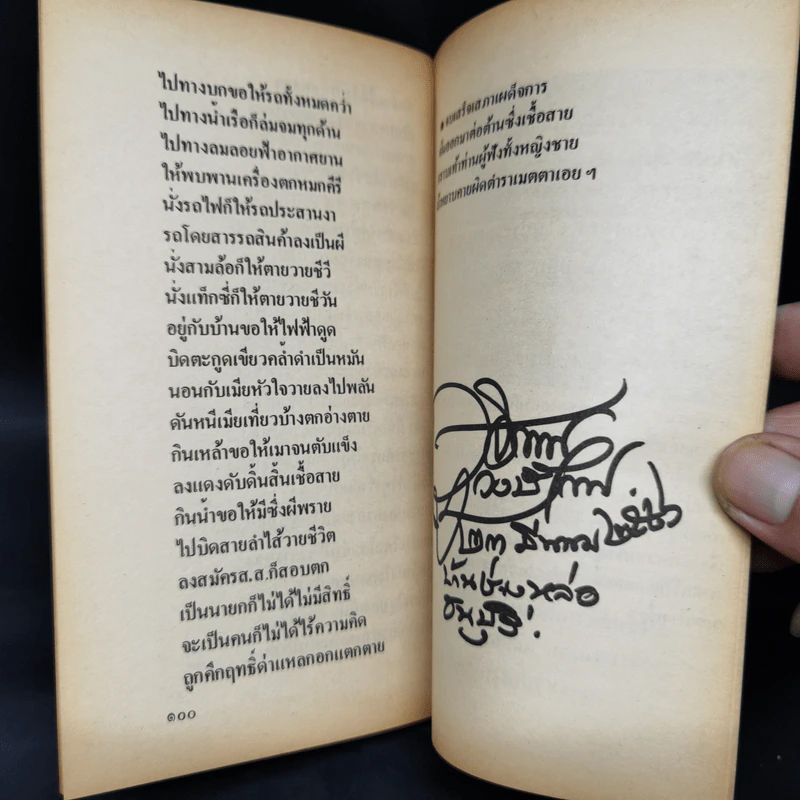 ไปทางบกขอให้รถทั้งหมดคว่ำ
ไปทางน้ำเรือก็ล่มจมทุกด้าน
ไปทางลมลอยฟ้าอากาศยาน
ให้พบพานเครื่องตกหมกคีรี
นั่งรถไฟก็ให้รถประสานงา
รถโดยสารรถสินค้าลงเป็นผี
นั่งสามล้อก็ให้ตายวายชีวี
นั่งแท็กซี่ก็ให้ตายวายชีวัน
อยู่กับบ้านขอให้ไฟฟ้าดูด
บิดตะกูดเขียวคล้ำดำเป็นหมัน
นอนกับเมียหัวใจวายลงไปพลัน
ดันหนีเมียเที่ยวบ้างตกอ่างตาย
กินเหล้าขอให้เมาจนตับแข็ง
ลงแดงดับดิ้นสิ้นเชื้อสาย
กินน้ำขอให้มีซึ่งผีพราย
ไปบิดสายลำไส้วายชีวิต
ลงสมัครส.ส.ก็สอบตก
เป็นนายกก็ไม่ได้ไม่มีสิทธิ์
จะเป็นคนก็ไม่ได้ไร้ความคิด
ถูกคึกฤทธิ์ด่าแหลกอกแตกตาย
๑๐๐
เสร็จเสภาเผด็จการ
ออกมาต่อต้านซึ่งเชื้อสาย
เท้าท่านผู้ฟังทั้งหญิงชาย
หยาบคายผิดตำราเมตตาเอย ฯ
บ้านช่างหล่อ
ธนบุรี